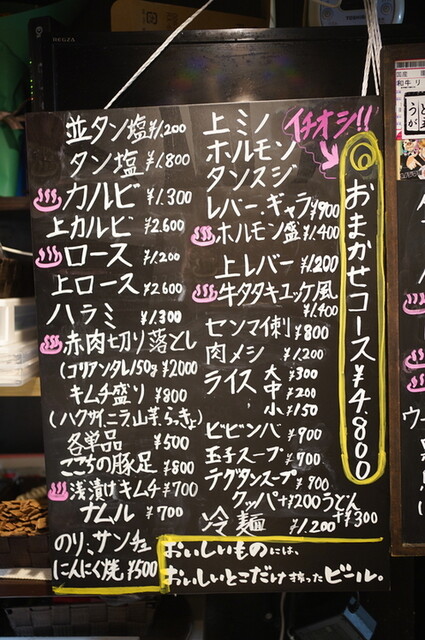 並タン塩 ¥1,200
タン塩 ¥1.800
カルビ ¥1.300
上カルビ ¥2.600
ロース ¥1.200
上ロース ¥2600
ハラミ ¥1.300
赤肉切り落とし
(コリアンタレ)150g ¥2000
キムチ盛り ¥800
(ハクサイ、ニラ、山芋、らっきょ)
各単品 ¥500
ここちの豚足 ¥800
浅漬けキムチ ¥700
ナムル ¥700
のり、サンチュ
にんにく焼 ¥500
上ミノ
ホルモン
タンスジ
レバー.ギャラ ¥900
ホルモン盛 ¥1.400
上レバー ¥1.200
牛タタキユッケ風
¥1.400
センマイ刺 ¥800
肉メシ ¥1.200
ライス 大 ¥300
中 ¥200
小 ¥150
ビビンバ ¥900
玉子スープ ¥700
テグタンスープ ¥900
クッパ+¥200うどん
+¥300
冷麺 ¥1.200
イチオシ!!
◎おまかせコース ¥4.800
おいしいものには、
おいしいとこだけ搾ったビール。
REGZA